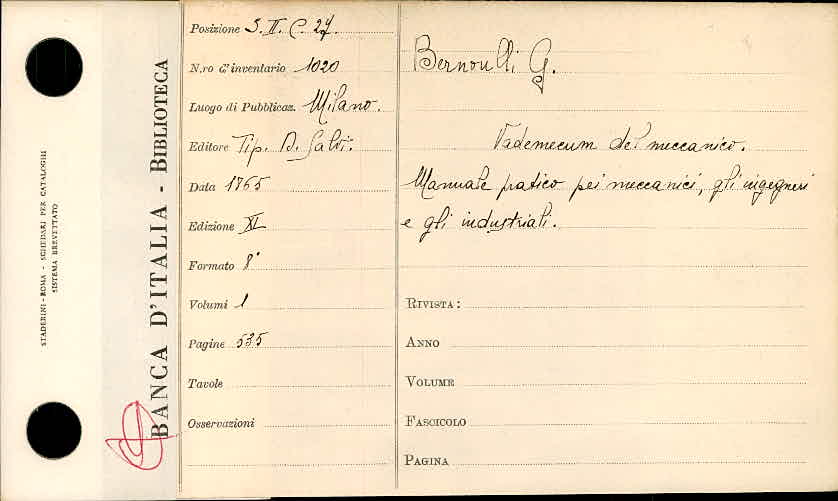 STADERINI - ROMA - SCHEDARI PER CATALOGHI
SISTEMA BREVETTATO
BANCA D'ITALIA - BIBLIOTECA
Posizione S. II. C. 27.
N.ro d'inventario 1020
Luogo di Pubblicaz. Milano.
Editore Tip. D. Salvi.
Data 1765
Edizione XI
Formato 8°
Volumi 1
Pagine 535
Tavole
Osservazioni
Bernoulli G.
Vademecum del meccanico.
Manuale pratico pei meccanici, gli ingegneri
e gli industriali.
RIVISTA:
ANNO
VOLUME
FASCICOLO
PAGINA